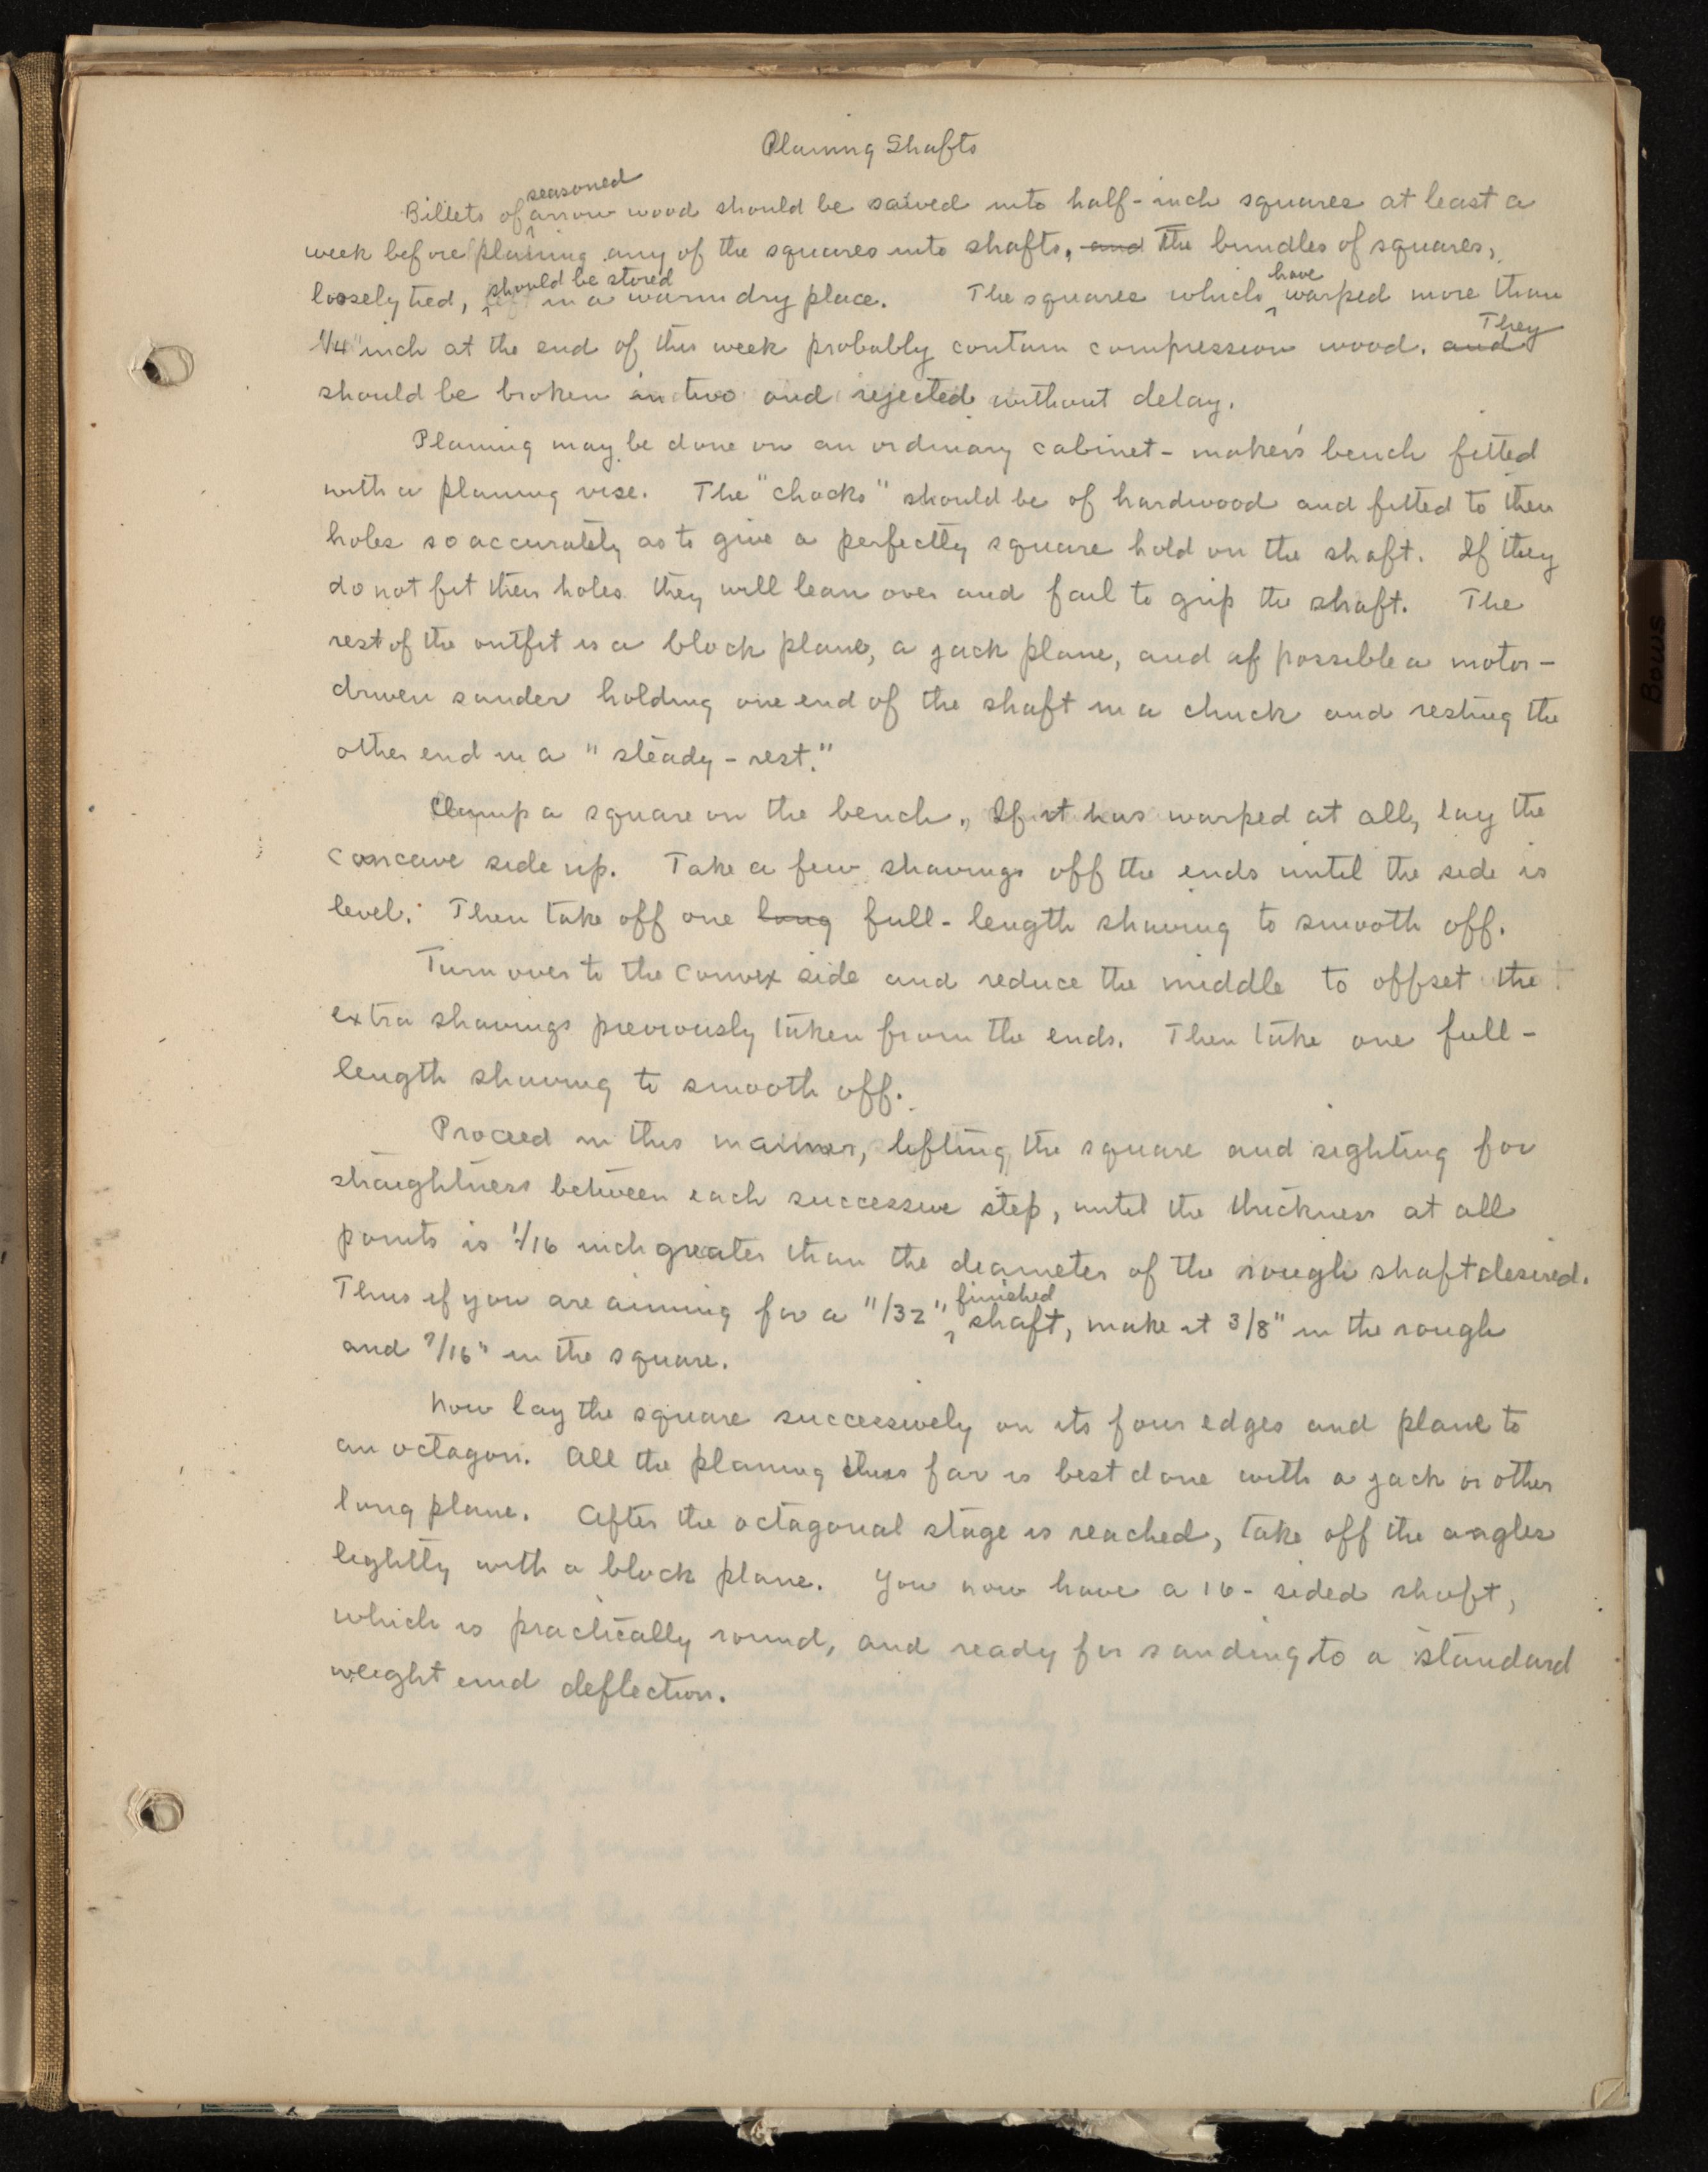 Planing Shafts
Billets of seasoned arrow wood should be sawed into half-inch squares at least a
week before planing any of the squares into shafts, and the bundles of squares,
loosely tied, should be stored in a warm dry place. The squares which have warped more than
1/4" inch at the end of this week probably contain compression wood. and They
should be broken in two and rejected without delay.
Planing may be done on an ordinary cabinet-maker's bench fitted
with a planing vise. The "chocks" should be of hardwood and fitted to their
holes so accurately as to give a perfectly square hold on the shaft. If they
do not fit their holes they will lean over and fail to grip the shaft. The
rest of the outfit is a block plane, a jack plane, and if possible a motor-
driven sander holding one end of the shaft in a chuck and resting the
other end in a "steady-rest."
Clamp a square on the bench. If it has warped at all, lay the
concave side up. Take a few shavings off the ends until the side is
level. Then take off one long full-length shaving to smooth off.
Turn over to the convex side and reduce the middle to offset the
extra shavings previously taken from the ends. Then take one full-
length shaving to smooth off.
Proceed in this manner, lifting the square and sighting for
straightness between each successive step, until the thickness at all
points is 1/16 inch greater than the diameter of the rough shaft desired.
Thus if you are aiming for a 11/32" finished shaft, make it 3/8" in the rough
and 7/16" in the square.
Now lay the square successively on its four edges and plane to
an octagon. All the planing thus far is best done with a jack or other
long plane. After the octagonal stage is reached, take off the angles
lightly with a block plane. You now have a 16-sided shaft,
which is practically round, and ready for sanding to a standard
weight and deflection.
Bows